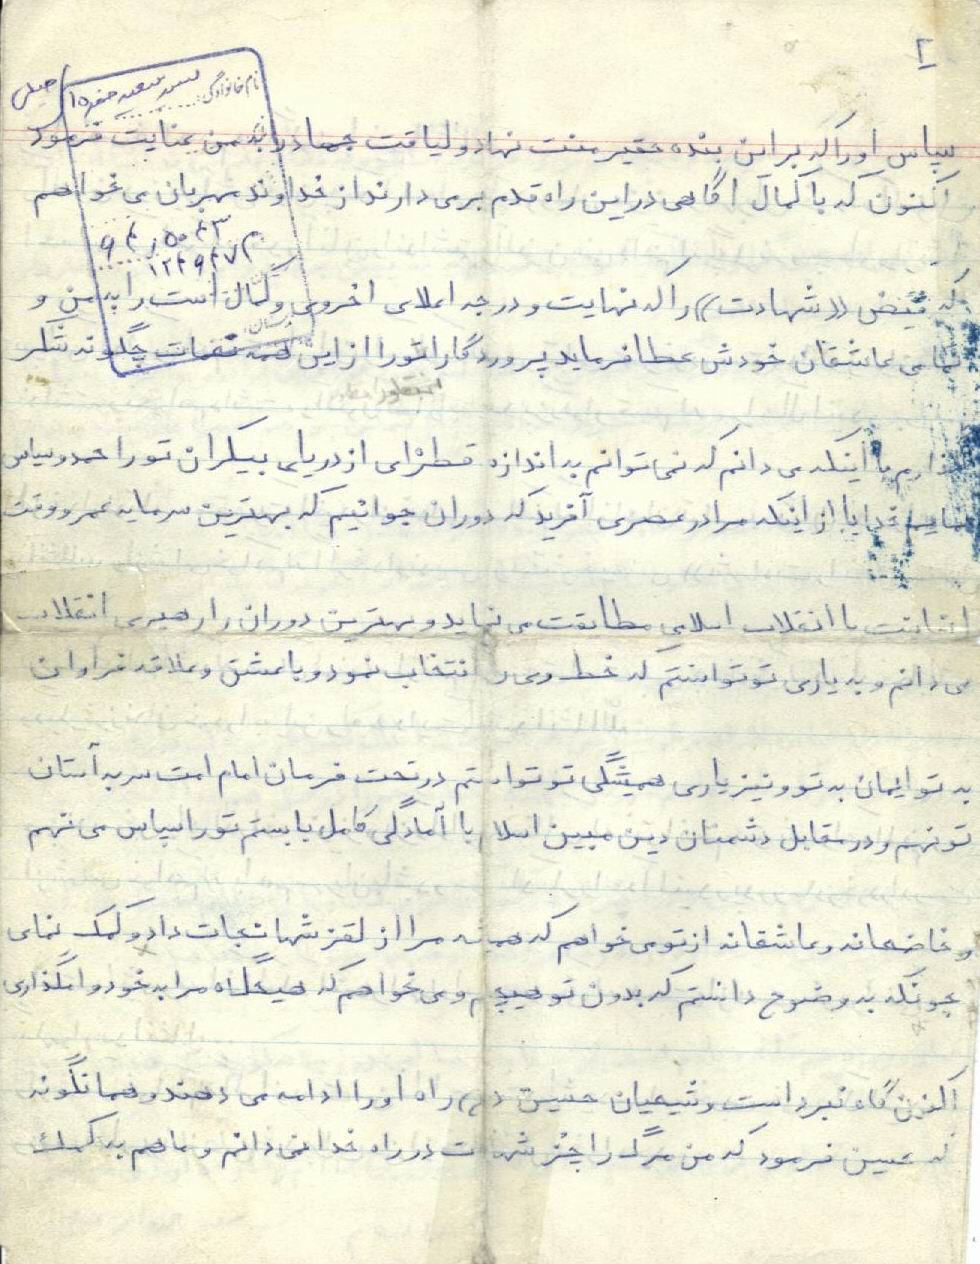 ۲
نام خانوادگی: سید سعید صفوی
سپاس او را که بر این بنده حقیر منت نهاد و لیاقت جهاد را به من عنایت فرمود
اکنون که با کمال آگاهی در این راه قدم برمی دارند از خداوند مهربان می خواهم
که فیض ((شهادت)) را که نهایت و درجه اعلای اخروی و کمال است را به من و
تمامی عاشقان خودش عطا فرماید پروردگارا تو را از این همه نعمات چگونه شکر
گذاریم با اینکه می دانم که نمی توانم به اندازه قطره ای از دریای بیکران تو را حمد و سپاس
نمایم خدایا از اینکه مرا در عصری آفرید که دوران جوانیم که بهترین سرمایه عمر و وقت
با انقلاب اسلامی مطابقت می نماید و بهترین دوران را رهبری انقلاب
می دانم و به یاری تو توانستم که خط وی را انتخاب نمود و با عشق و علاقه فراوان
به تو ایمان به تو و نیز یاری همیشگی تو توانستم در تحت فرمان امام امت سر به آستان
تو نهم و در مقابل دشمنان دین مبین اسلام با آمادگی کامل بایستم تو را سپاس می نهم
و خاضعانه و عاشقانه از تو می خواهم که همیشه مرا از لغزشها نجات داد و کمک نمای
چونکه به وضوح دانستم که بدون تو هیچم و می خواهم که هیچگاه مرا به خود وامگذاری
اکنون گاه نبرد است و شیعیان حسین راه او را ادامه می دهند و همانگونه
که حسین فرمود که من مرگ را جز شهادت در راه خدا نمی دانم و ما هم به کمک